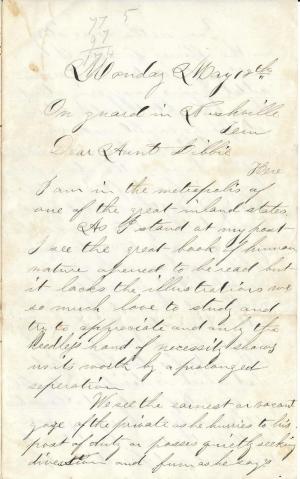 77 5
27
Monday May 18th
On guard in Nashville
Tenn
Dear Aunt Libbie
Here
I am in the metropolis of
one of the great inland states.
As I stand at my post
I see the great book of human
nature opened to be read but
it lacks the illustrations we
so much love to study and
try to appreciate and only the
hand of necessity shows
us its worth by a prolonged
seperation
We see the earnest or vacant
gaze of the private as he hurries to his
post of duty or passes quietly seeking
diversion and fun as he says